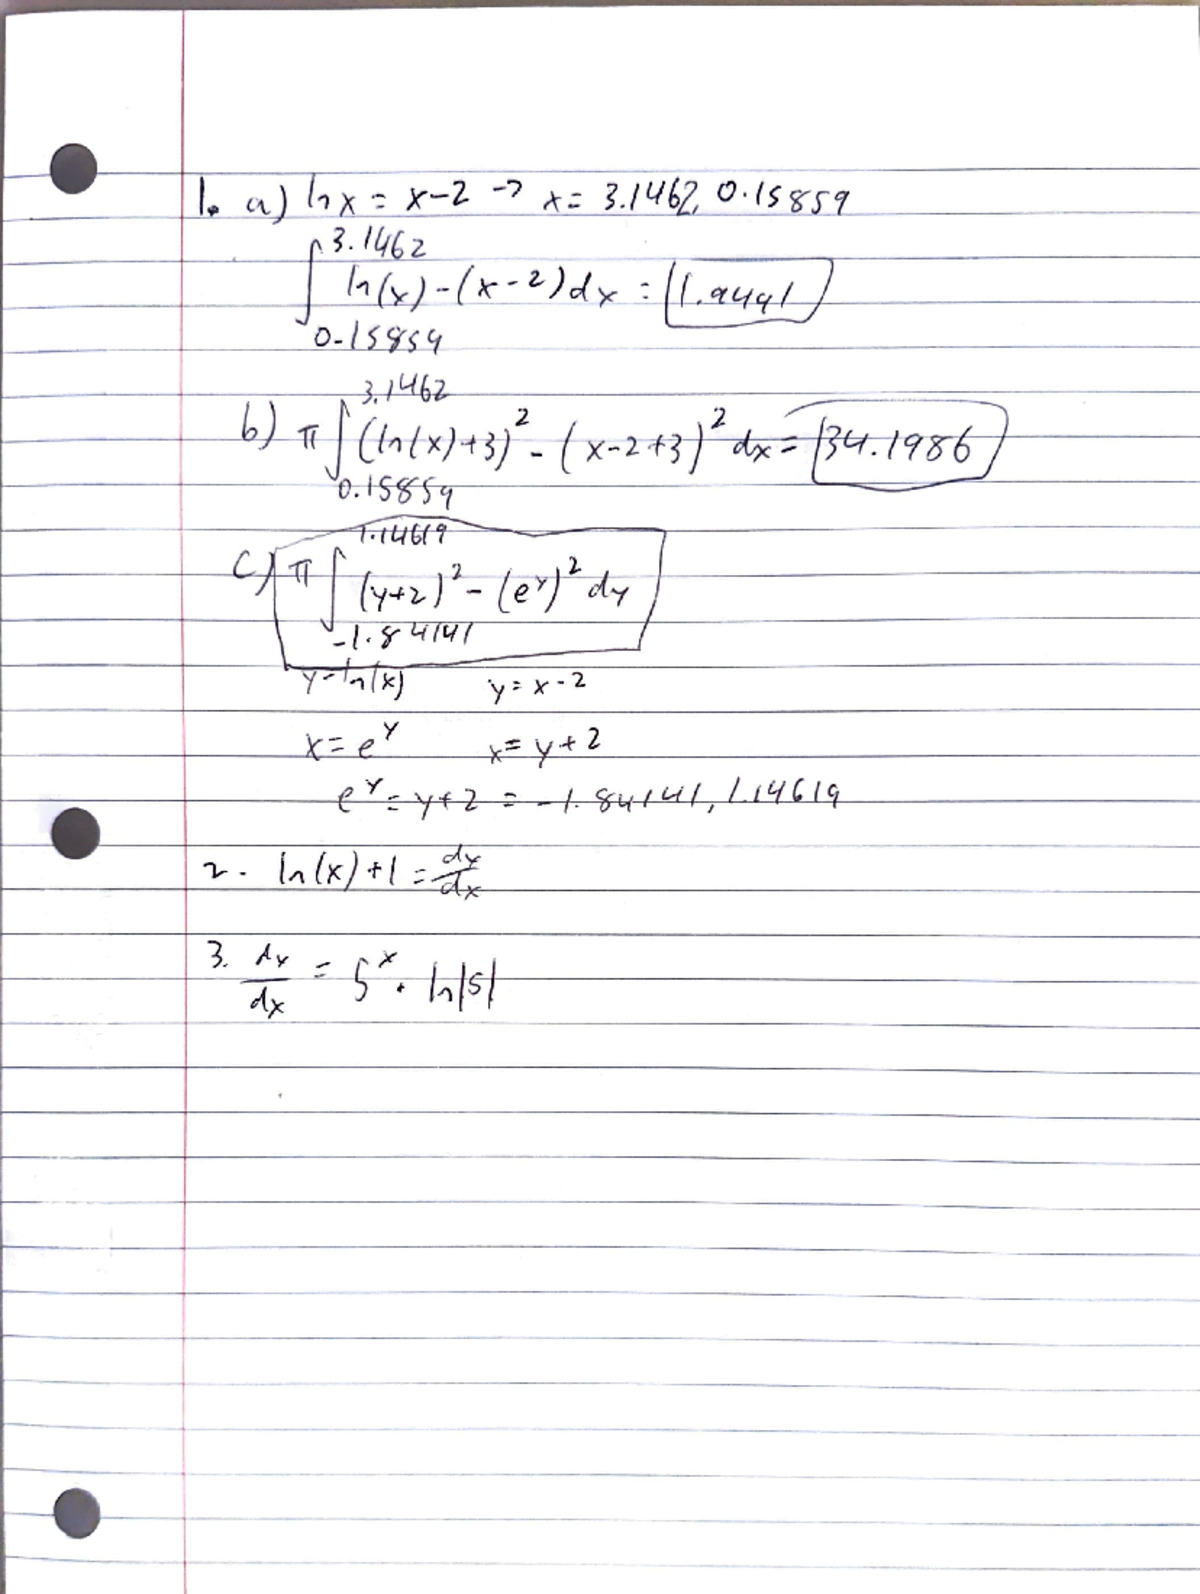 1. a) ln x = x-2 -> x = 3.1462, 0.15859
3.1462
∫ ln(x) - (x-2) dx = 1.9491
0.15859
3.1462
b) π ∫ (ln(x)+3)² - (x-2+3)² dx = 34.1986
0.15859
1.14619
c) π ∫ (y+2)² - (e^y)² dy
-1.84141
y = ln(x) y = x-2
x = e^y x = y+2
e^y = y+2 = -1.84141, 1.14619
2. ln(x)+1 = dy/dx
3. dy/dx = 5^x · ln|5|